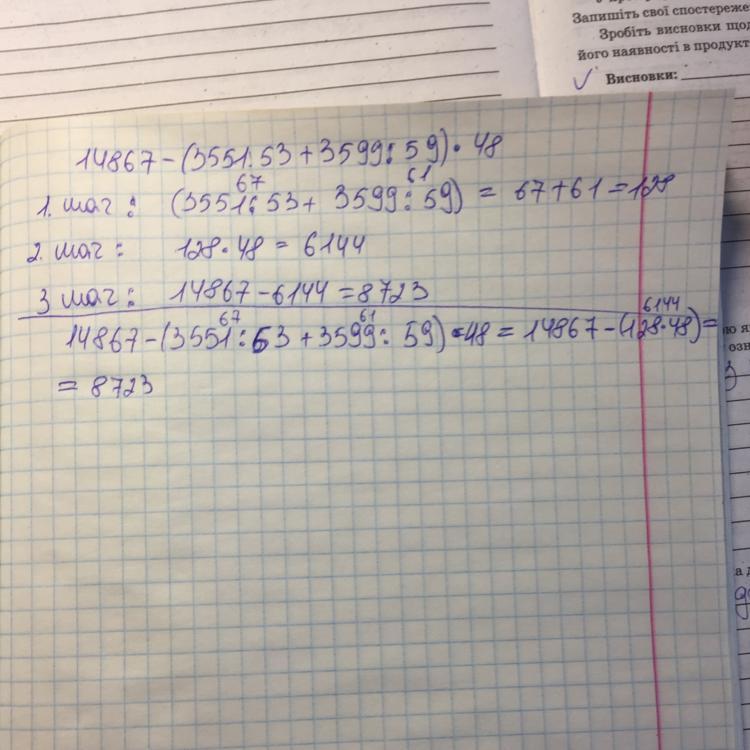 Запишіть свої спостереже
Зробіть висновки щод
його наявності в продукт
Висновки:
14867-(3551:53+3599:59)·48
67 61
1. шаг: (3551:53+ 3599:59) = 67+61=128
2. шаг: 128·48 = 6144
3 шаг: 14867-6144=8723
67 61 6144
14867-(3551:53+3599:59)·48=14867-(128·48)=
= 8723